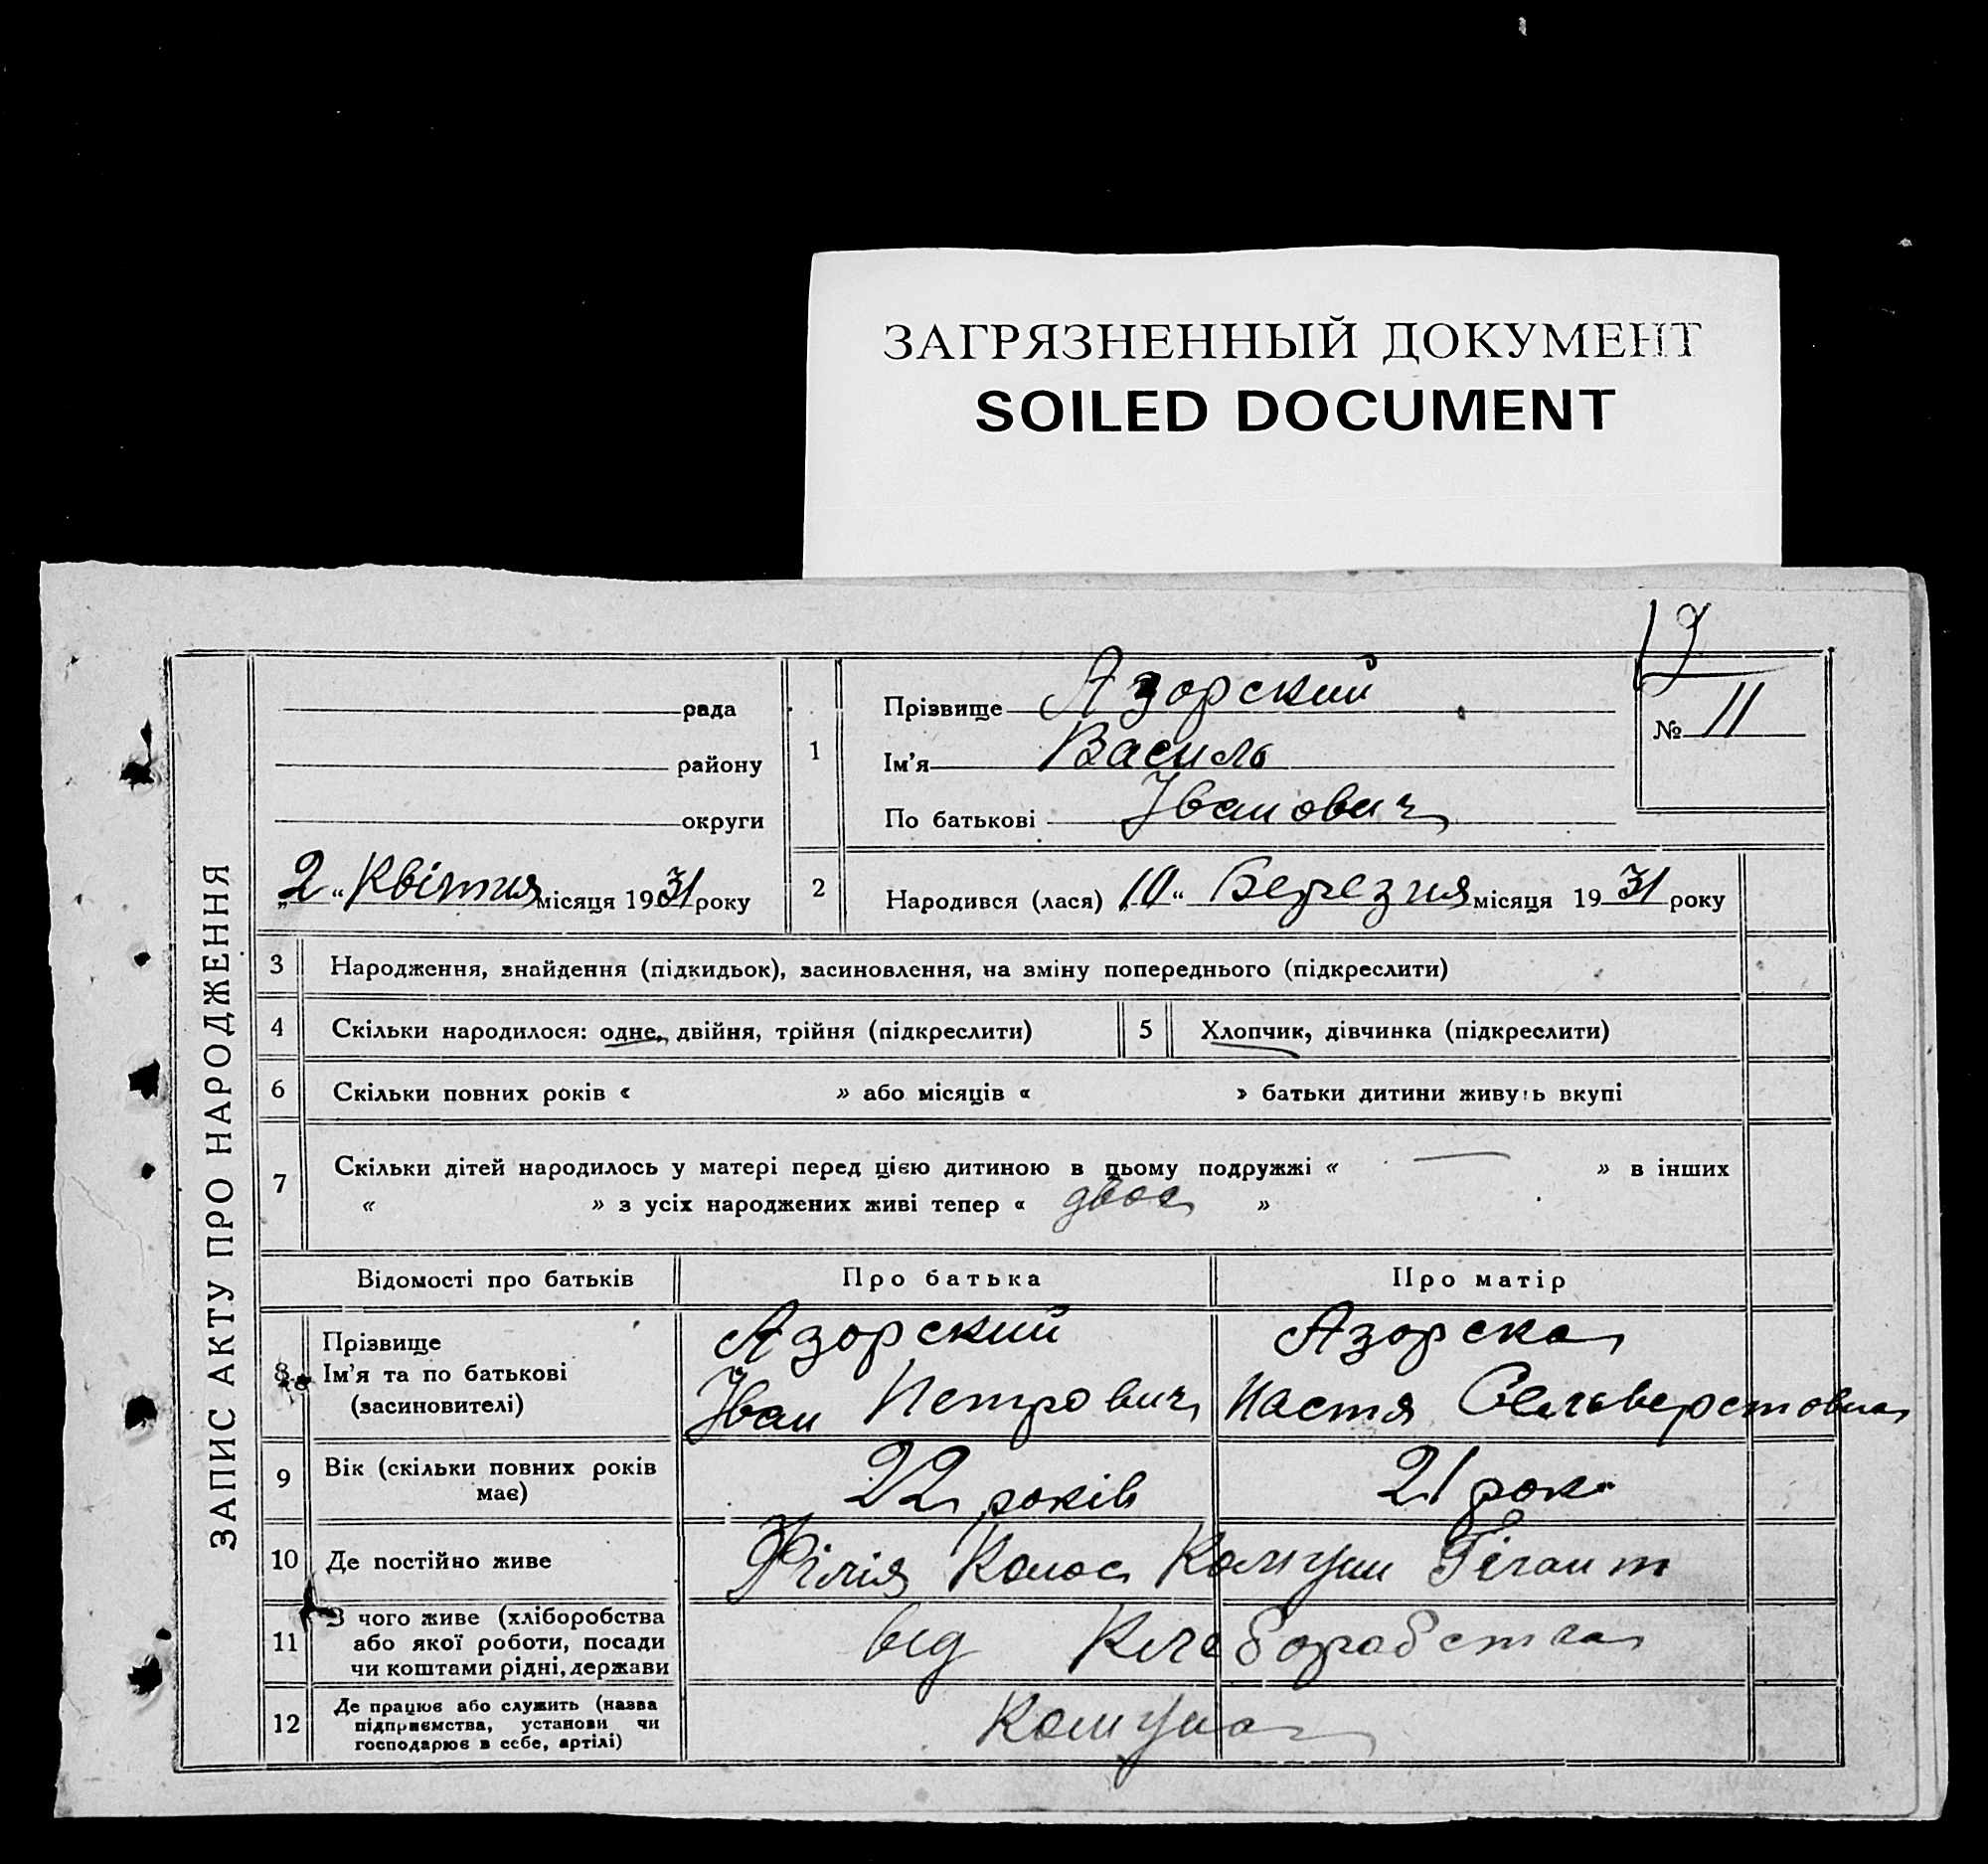 ЗАГРЯЗНЕННЫЙ ДОКУМЕНТ
SOILED DOCUMENT
19
ЗАПИС АКТУ ПРО НАРОДЖЕННЯ
рада
району
округи
„2“ Квітня місяця 1931 року
1
Прізвище Азорский
Ім'я Василь
По батькові Іванович
№ 11
2
Народився (лася) „10“ Березня місяця 1931 року
3 Народження, знайдення (підкидьок), засиновлення, на зміну попереднього (підкреслити)
4 Скільки народилося: одне, двійня, трійня (підкреслити)
5 Хлопчик, дівчинка (підкреслити)
6 Скільки повних років « » або місяців « » батьки дитини живуть вкупі
7 Скільки дітей народилось у матері перед цією дитиною в цьому подружжі « — » в інших
« » з усіх народжених живі тепер « двоє »
Відомості про батьків Про батька Про матір
8 Прізвище Азорский Азорска
Ім'я та по батькові Іван Петрович Настя Сельверстовна
(засиновителі)
9 Вік (скільки повних років має) 22 років 21 рок
10 Де постійно живе Філія Колос Комуни Гігант
11 З чого живе (хліборобства
або якої роботи, посади
чи коштами рідні, держави
від Хліборобства
12 Де працює або служить (назва
підприємства, установи чи
господарює в себе, артілі)
Комуна